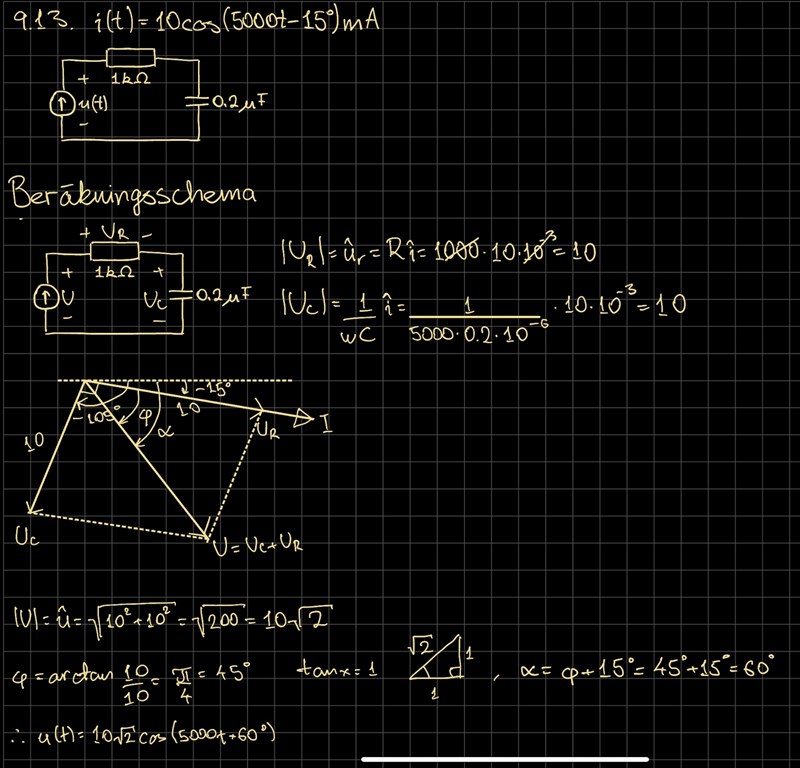 9.13. i(t) = 10cos(5000t-15°)mA
+ 1kΩ
u(t) 0.2μF
-
Beräkningsschema
+ U_R -
+ 1kΩ +
U U_C 0.2μF
- -
|U_R| = û_r = Rî = 1000·10·10^-3 = 10
|U_C| = 1/ωC î = 1/5000·0.2·10^-6 · 10·10^-3 = 10
-15°
-105° φ 10
α
10 U_R I
U_C
U = U_C + U_R
|U| = û = √10²+10² = √200 = 10√2
φ = arctan 10/10 = π/4 = 45° tanx = 1 √2 1 1 , α = φ+15° = 45°+15° = 60°
∴ u(t) = 10√2 cos(5000t+60°)